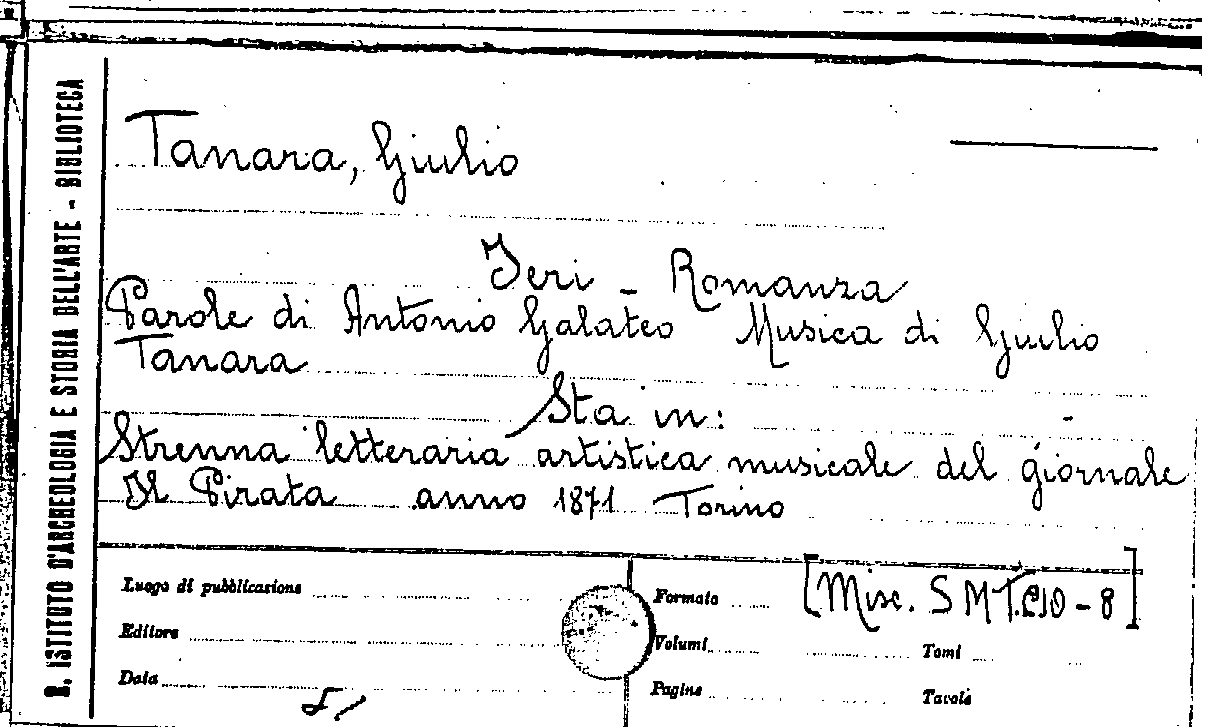 R. ISTITUTO D'ARCHEOLOGIA E STORIA DELL'ARTE - BIBLIOTECA
Tanara, Giulio
Ieri - Romanza
Parole di Antonio Galateo Musica di Giulio
Tanara
Sta in:
Strenna letteraria artistica musicale del giornale
Il Pirata anno 1871 Torino
[Misc. S M
Luogo di pubblicazione
Formato
Editore
Volumi
Tomi
Data
Pagine
Tavole